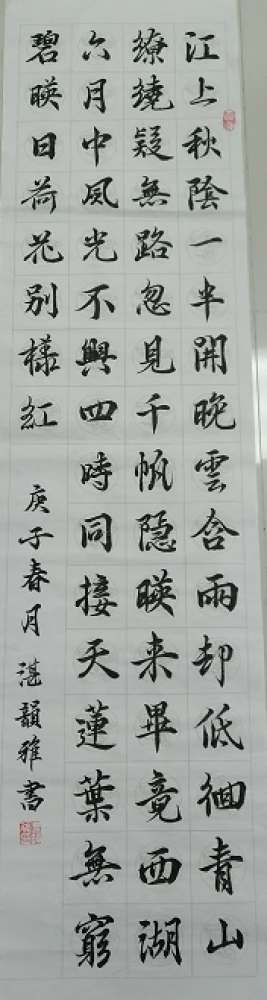 江上秋陰一半開晚雲含雨却低徊青山
繚繞疑無路忽見千帆隱暎来畢竟西湖
六月中風光不與四時同接天蓮葉無窮
碧暎日荷花别樣紅
庚子春月 湛韻雅書